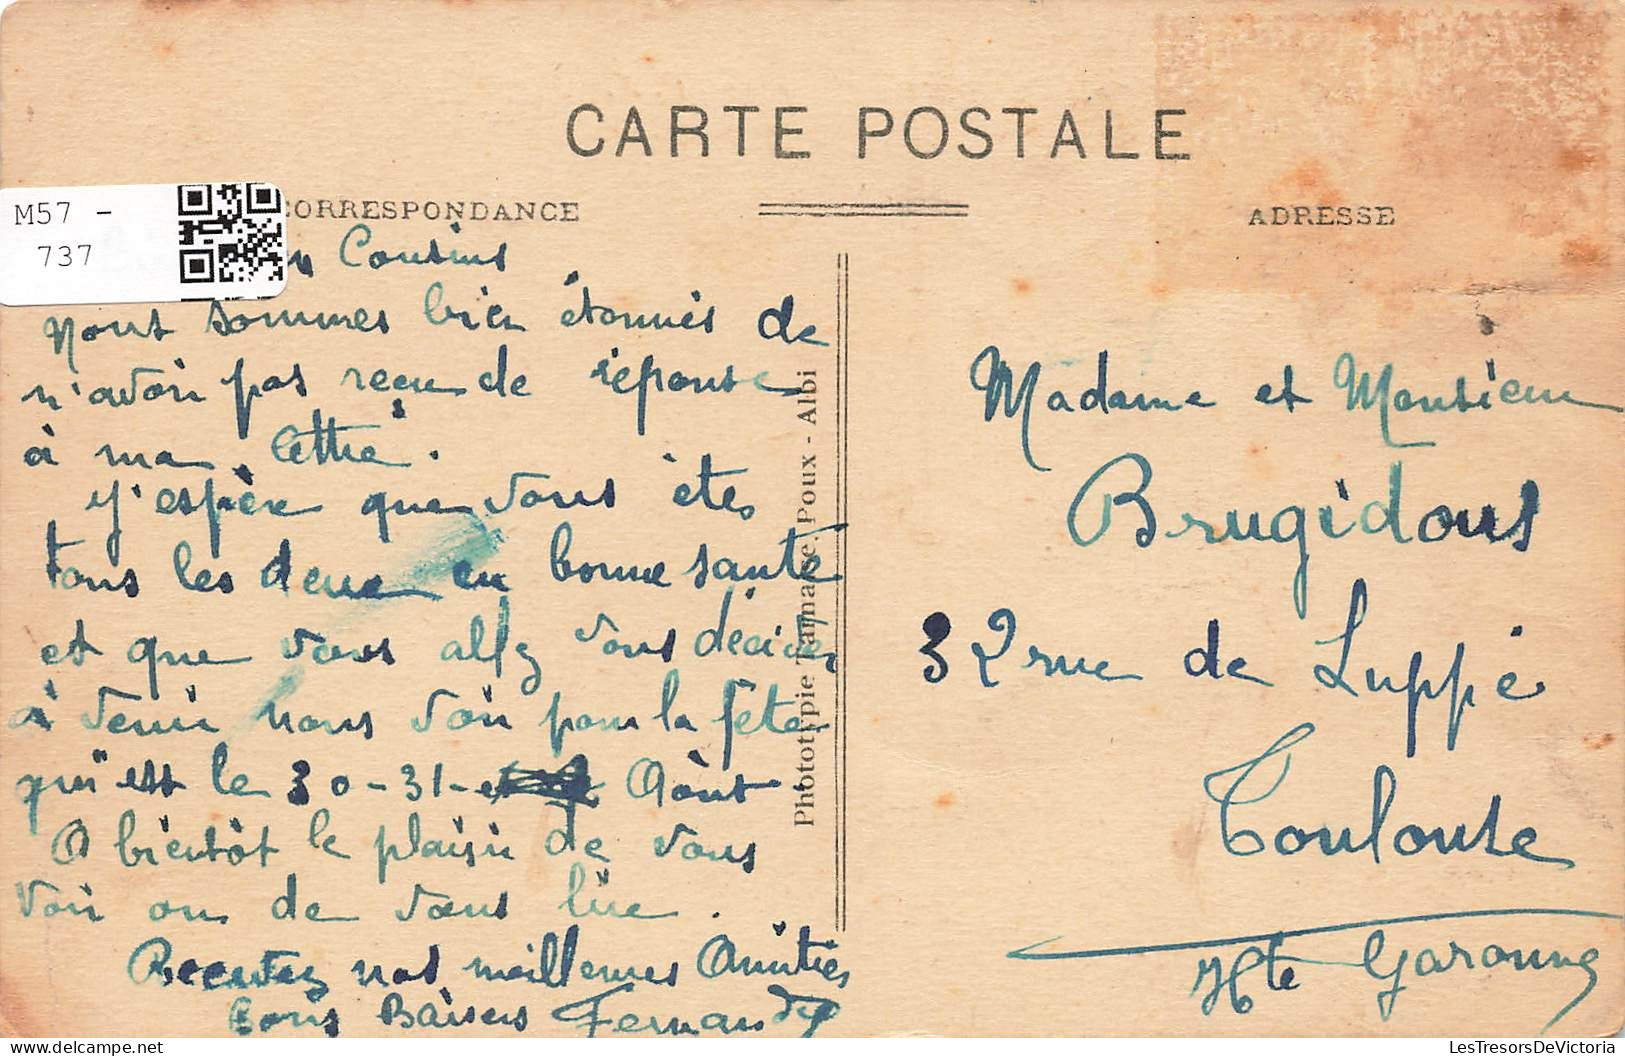 CARTE POSTALE
M57 -
737
CORRESPONDANCE
ADRESSE
Cousins
Nous sommes bien étonnés de
n'avoir pas reçu de réponse
à ma lettre.
J'espère que vous êtes
tous les deux en bonne santé
et que vous allez vous décider
à venir nous voir pour la fête
qui est le 30-31- Août
A bientôt le plaisir de vous
voir ou de vous lire.
Recevez nos meilleures Amitiés
Bons Baisers Fernande
Phototypie Tarnaise, Poux - Albi
Madame et Monsieur
Brugidous
32 rue de Luppé
Toulouse
Hte Garonne
LesTresorsDeVictoria